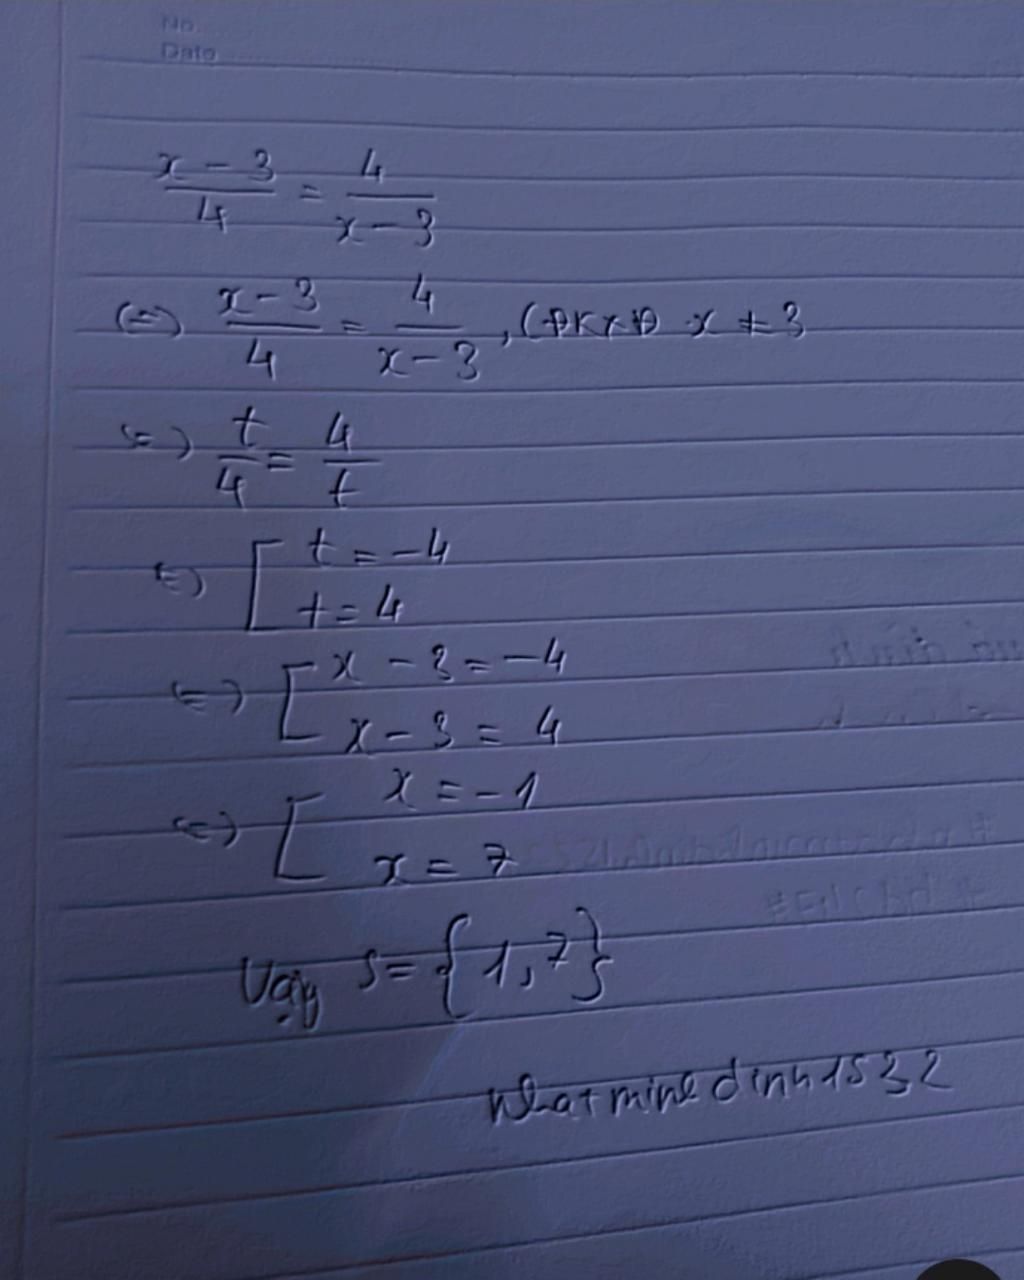 No.
Date
x - 3 / 4 = 4 / x - 3
(=) x - 3 / 4 = 4 / x - 3 , (ĐKXĐ x ≠ 3
(=) t / 4 = 4 / t
(=) [ t = -4
t = 4
(=) [ x - 3 = -4
x - 3 = 4
(=) [ x = -1
x = 7
Vậy S = { 1, 7 }
nhatminhdinh1532